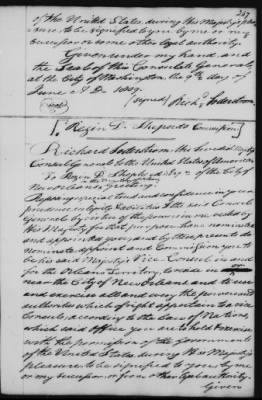 287
of the United States, during his Majesty's plea-
sure, to be signified by me, by me or my
successor or some other legal authority.
Given under my hand and
the Seal of this Consulate General
at the City of Washington the 9th day of
June A.D. 1809.
(signed) Richd Soderstrom.
Rezin D. Shepherds Commission
Richard Soderstrom, His Swedish Majesty's
Consul General to the United States of America
To Rezin D. Shepherd Esqr of the City of
New Orleans, Greeting.
Reposing special trust and confidence in your
prudence and integrity I the said Consul
General by virtue of the power in me vested by
His Majesty for that purpose have nominated
and appointed you and by these presents do
nominate, appoint and Commission you to
be his said Majesty's Vice Consul in and
for the Orleans Territory, to reside in or
near the City of New Orleans and to use
and exercise all and every the powers and
authorities which of right appertain to a Vice
Consul, according to the Law of Nations,
which said Office you are to hold & exercise
with the permission of the Government
of the United States, during His Majesty's
pleasure to be signified to you by me
or my successor, or some other legal authority.
Given